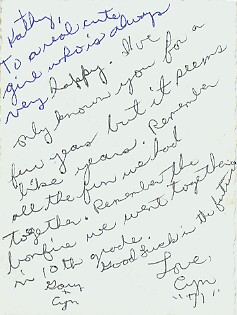 Kathy,
To a real cute
girl who's always
very happy. I've
only known you for a
few years but it seems
like years. Remember
all the fun we had
together. Remember the
bonfire we went together
in 10th grade.
Good luck in the future
Gary
Cyn
Love,
Cyn
"71"